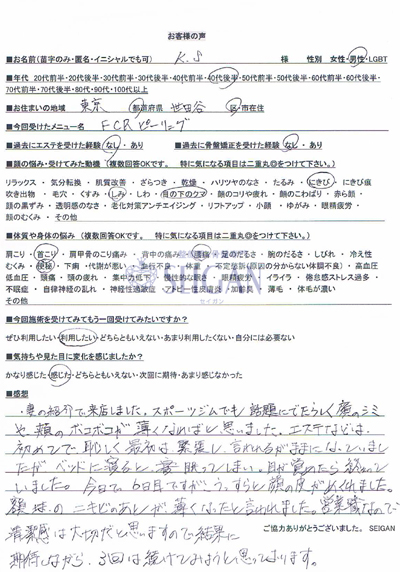 お客様の声
■お名前(苗字のみ・匿名・イニシャルでも可) K.S 様 性別 女性・男性・LGBT
■年代 20代前半・20代後半・30代前半・30代後半・40代前半・40代後半・50代前半・50代後半・60代前半・60代後半・
70代前半・70代後半・80代・90代・100代以上
■お住まいの地域 東京 都道府県 世田谷 区市在住
■今回受けたメニュー名 FCRピーリング
■過去にエステを受けた経験 なし・あり ■過去に骨盤矯正を受けた経験 なし・あり
■顔の悩み・受けてみた動機(複数回答OKです。 特に気になる項目は二重丸◎をつけて下さい。)
リラックス ・ 気分転換 ・ 肌質改善 ・ ざらつき ・ 乾燥 ・ ハリツヤのなさ ・ たるみ ・ にきび ・ にきび痕
吹き出物 ・ 毛穴 ・ くすみ ・ しみ ・ しわ ・ 目の下のクマ ・ 顔のコリや疲れ ・ 顔のこわばり ・ 赤ら顔 ・
頬の黒ずみ ・ 透明感のなさ ・ 老化対策アンチエイジング ・ リフトアップ ・ 小顔 ・ ゆがみ ・ 眼精疲労 ・
顔のむくみ ・ その他
■体質や身体の悩み(複数回答OKです。 特に気になる項目は二重丸◎をつけて下さい。)
肩こり ・ 首こり ・ 肩甲骨のこり痛み ・ 背中の痛み ・ 腰痛 ・ 足のだるさ ・ 腕のだるさ ・ しびれ ・ 冷え性
むくみ ・ 便秘 ・ 下痢 ・ 代謝が悪い ・ 血行不良 ・ 体重 ・ 不定愁訴(原因の分からない体調不良) ・ 高血圧
低血圧 ・ 頭痛 ・ 頭の疲れ ・ 集中力低下 ・ 慢性的な眠さ ・ 眼精疲労 ・ イライラ ・ 倦怠感ストレス過多
・ 不眠症 ・ 自律神経の乱れ ・ 神経性過敏症 ・ アトピー性皮膚炎 ・ 加齢臭 ・ 薄毛 ・ 体毛が濃い
その他
SEIGAN
セイガン
■今回施術を受けてみてもう一回受けてみたいですか?
ぜひ利用したい・利用したい・どちらともいえない・あまり利用したくない・自分には必要ない
■気持ちや見た目に変化を感じましたか?
かなり感じた・感じた・どちらともいえない・次回に期待・あまり感じなかった
■感想
・妻の紹介で来店しました。スポーツジムでも話題にでたらしく顔のシミ
や、頬のボコボコが薄くなればと思いました。エステなどは
初めてで恥しく最初は緊張し、言われるがままになっていまし
たがベッドに寝ると、凄眠ってしまい。目が覚めたら終わって
いました。今日で6日目ですがこうすらと顔の皮がめくれました。
顔は のニキビのあとが薄くなったと言われました。営業職なので
清潔感は大切だと思いますので結果に
期待しながら、3回は続けてみようと思っております。
ご協力ありがとうございました。 SEIGAN